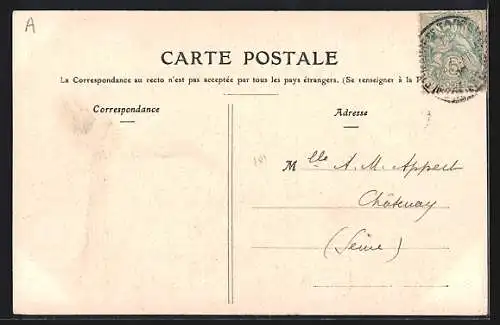 A
CARTE POSTALE
La Correspondance au recto n'est pas acceptée par tous les pays étrangers. (Se renseigner à la
Correspondance
Adresse
Mlle A. M. Appert
Châtenay
(Seine)